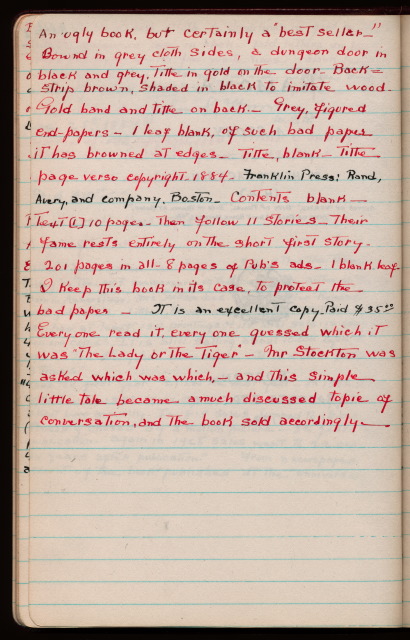 An ugly book, but certainly a "best seller—"
Bound in grey cloth sides, a dungeon door in
black and grey, Title in gold on the door. Back=
strip brown, shaded in black to imitate wood-
Gold band and title on back.— Grey, figured
end-papers — 1 leaf blank, of such bad paper
it has browned at edges— Title, blank— Title
page verso copyright 1884— Franklin Press: Rand,
Avery, and company, Boston— Contents blank—
Text [1] 10 pages— Then follow 11 stories— Their
fame rests entirely on the short first story-
201 pages in all— 8 pages of Pub's ads— 1 blank leaf
I keep this book in its case, to protect the
bad paper — It is an excellent copy Paid $35.00
Everyone read it, every one guessed which it
was "The Lady or The Tiger"— Mr Stockton was
asked which was which,— and this simple
little tale became a much discussed topic of
conversation, and the book sold accordingly—